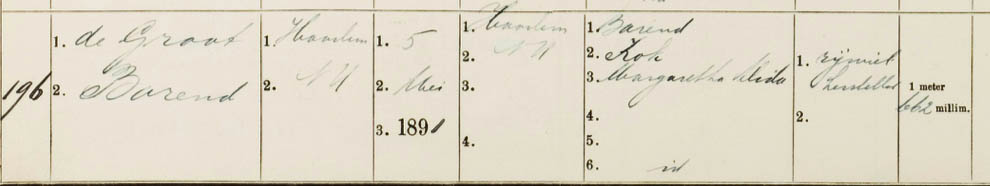 196
1. de Groot
2. Barend
1. Haarlem
2. N H
1. 5
2. Mei
3. 1891
1. Haarlem
2. N H
3.
4.
1. Barend
2. Kok
3. Margaretha Alida
4.
5.
6. id
1. rijwiel
hersteller
2.
1 meter
662 millim.